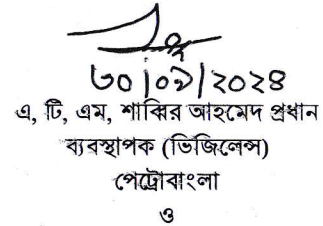 ৩০/০৯/২০২৪
এ, টি, এম, শাব্বির আহমেদ প্রধান
ব্যবস্থাপক (ভিজিলেন্স)
পেট্রোবাংলা
ও